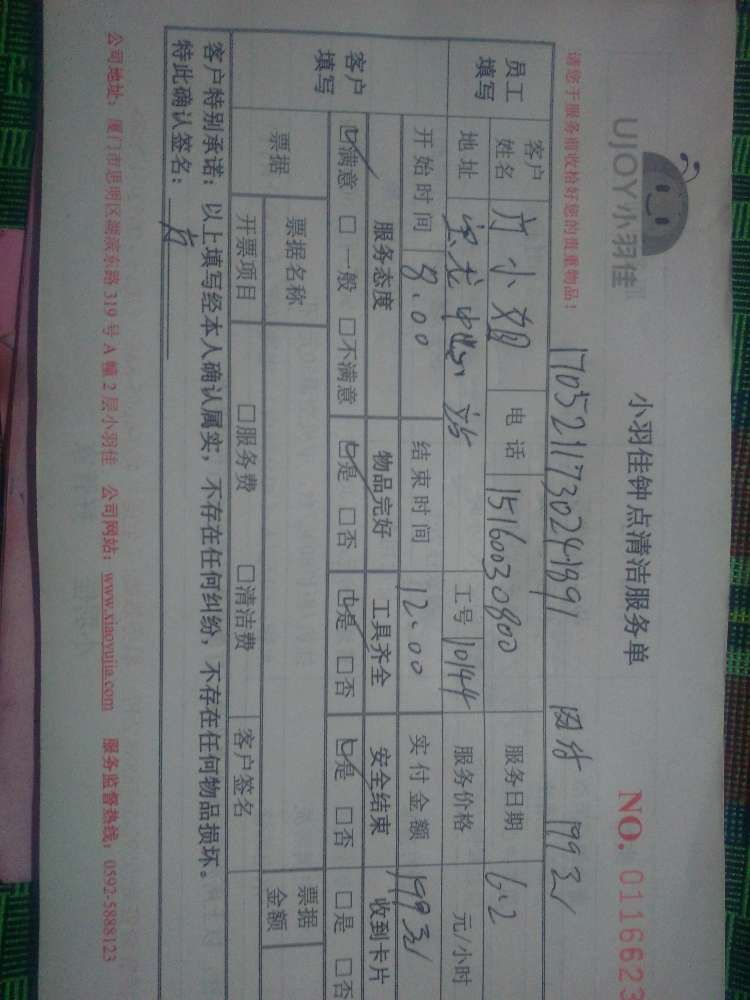 UJOY小羽佳
小羽佳钟点清洁服务单
NO. 0116623
请您于服务前收拾好您的贵重物品！
团结 199元
员工填写
客户姓名 卢小姐 电话 15160030800 服务日期 6.2
地址 宝龙中心 工号 10144 服务价格 元/小时
开始时间 8.00 结束时间 12.00 实付金额 199元
客户填写
服务态度 物品完好 工具齐全 安全结束 收到卡片
☑满意 □一般 □不满意 ☑是 □否 ☑是 □否 ☑是 □否 □是 □否
票据 票据名称 票据金额
开票项目 □服务费 □清洁费 客户签名
客户特别承诺：以上填写经本人确认属实，不存在任何纠纷，不存在任何物品损坏。
特此确认签名：
公司地址：厦门市思明区湖滨东路 319 号 A 幢 2 层小羽佳 公司网站：www.xiaoyujia.com 服务监督热线：0592-5888123